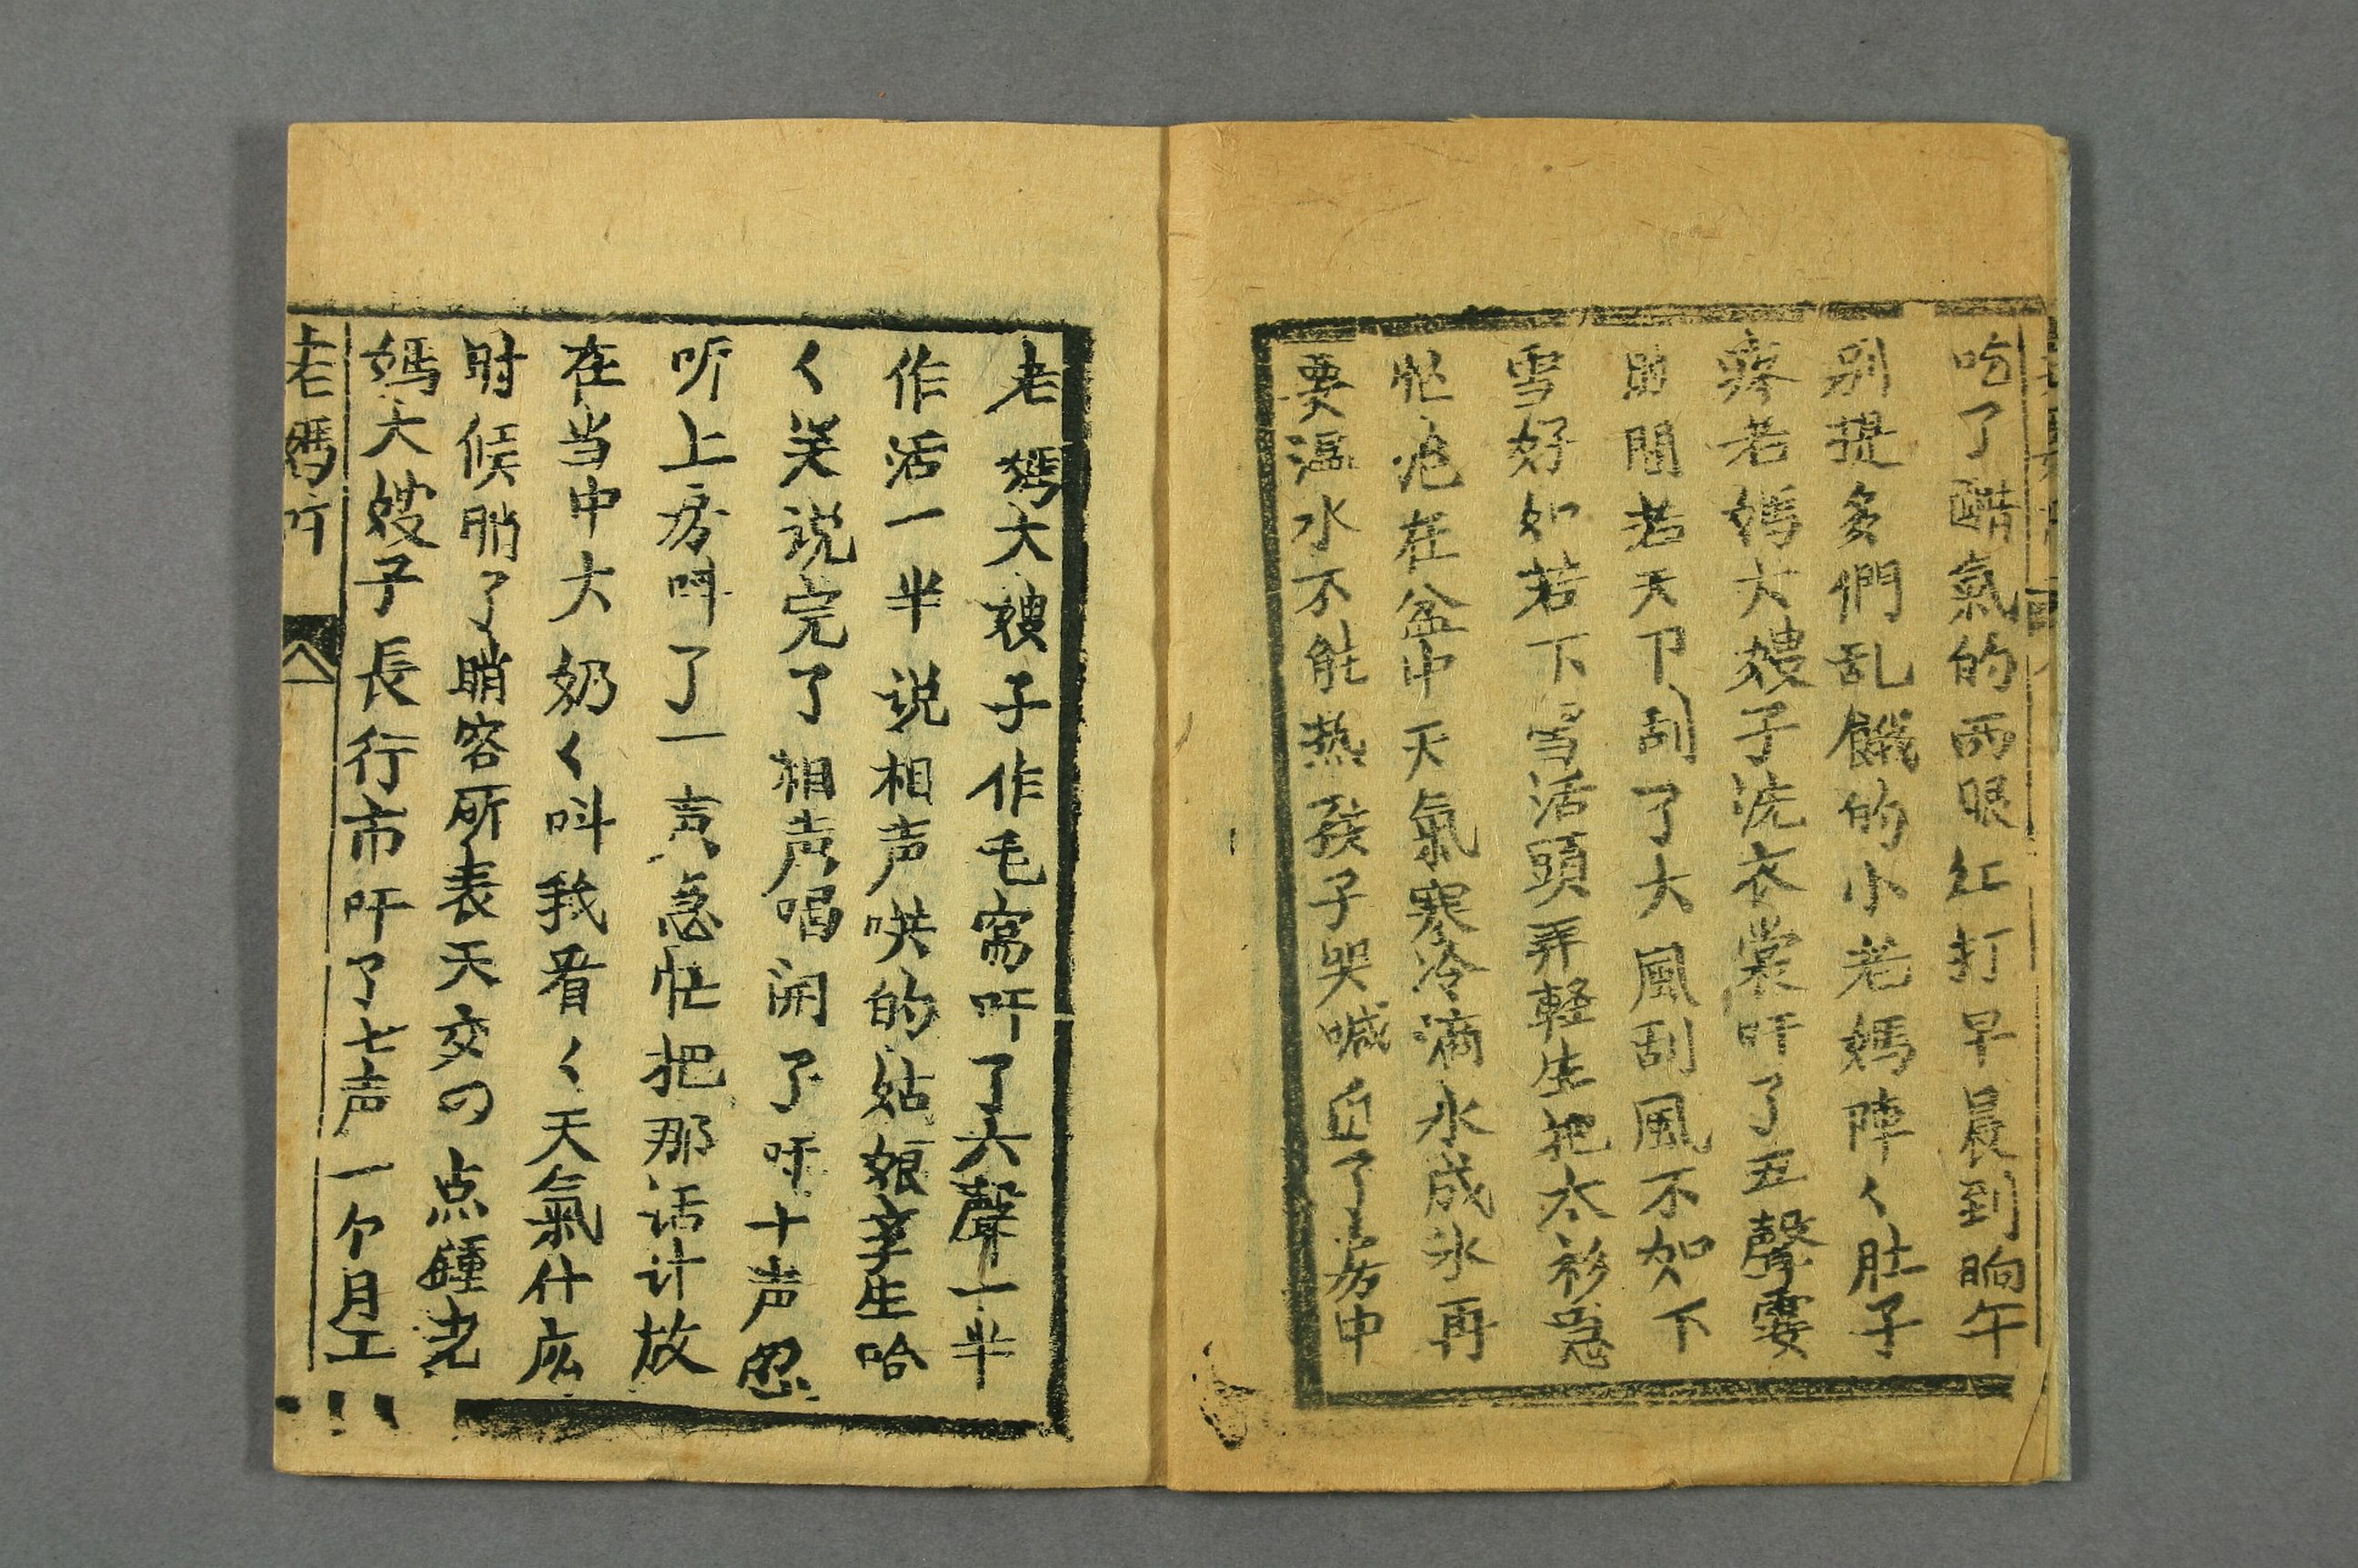 吃了醋氣的両眼紅打早晨到晌午
别提多們乱餓的小老媽陣〱肚子
疼老媽大嫂子洗衣裳吁了五聲要
助間若天下刮了大風刮風不如下
雪好如若下雪活頭弄輕生把太衫急
忙泡在盆中天氣寒冷滴水成氷再
要溫水不能热孩子哭喊丘了房中
老媽大嫂子作毛窩吁了六聲一半
作活一半说相声哄的姑娘孛生哈
〱笑说完了相声唱開了吁十声忽
听上房呌了一声急忙把那活计放
在当中大奶〱呌我看〱天氣什広
时候眧了眧容所表天交四点鍾老
媽大嫂子長行市吁了七声一个月工
老媽吁 八